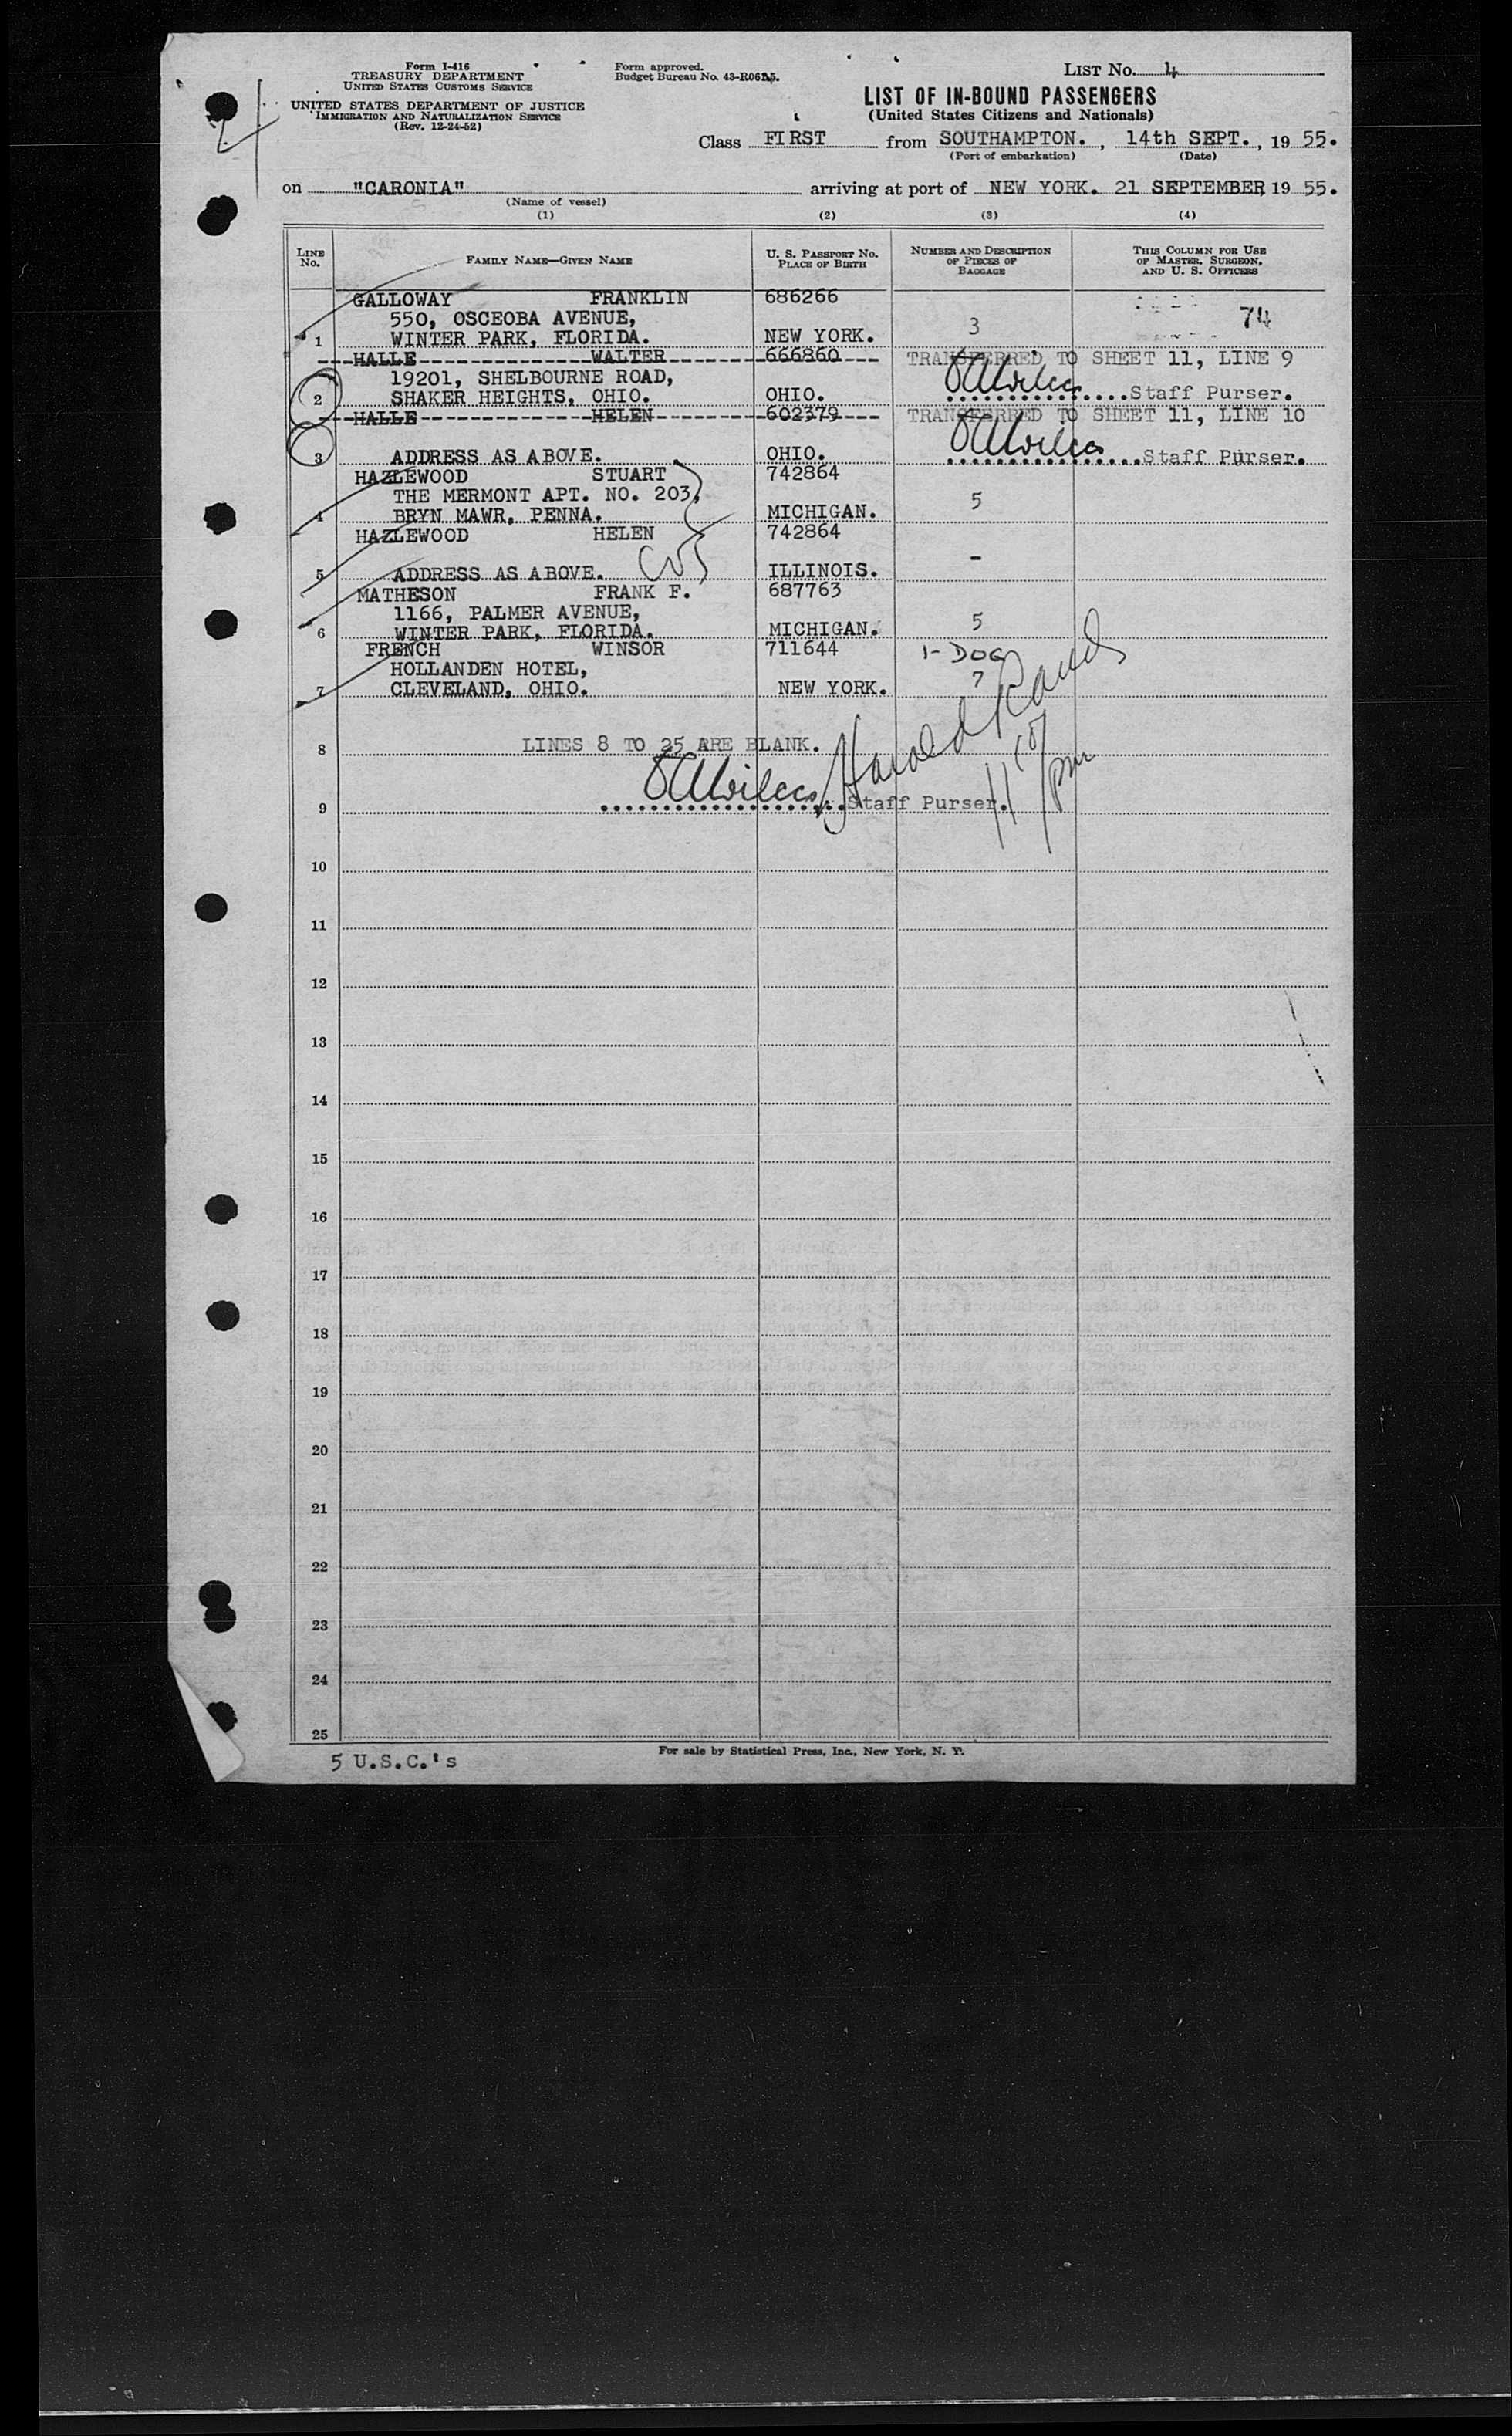 Form I-416
TREASURY DEPARTMENT
UNITED STATES CUSTOMS SERVICE
UNITED STATES DEPARTMENT OF JUSTICE
IMMIGRATION AND NATURALIZATION SERVICE
(Rev. 12-24-52)
Form approved.
Budget Bureau No. 43-R06
LIST NO. 4
LIST OF IN-BOUND PASSENGERS
(United States Citizens and Nationals)
Class FIRST from SOUTHAMPTON. , 14th SEPT. , 19 55.
(Port of embarkation) (Date)
on "CARONIA" arriving at port of NEW YORK. 21 SEPTEMBER 19 55.
(Name of vessel)
(1) (2) (3) (4)
LINE NO. FAMILY NAME—GIVEN NAME U. S. PASSPORT NO. PLACE OF BIRTH NUMBER AND DESCRIPTION OF PIECES OF BAGGAGE THIS COLUMN FOR USE OF MASTER, SURGEON, AND U. S. OFFICERS
GALLOWAY FRANKLIN 686266
550, OSCEOBA AVENUE, 3 74
1 WINTER PARK, FLORIDA. NEW YORK.
HALLE WALTER 666860 TRANSFERRED TO SHEET 11, LINE 9
19201, SHELBOURNE ROAD,
2 SHAKER HEIGHTS, OHIO. OHIO. Staff Purser.
HALLE HELEN 602379 TRANSFERRED TO SHEET 11, LINE 10
3 ADDRESS AS ABOVE. OHIO. Staff Purser.
HAZLEWOOD STUART 742864
THE MERMONT APT. NO. 203, 5
4 BRYN MAWR, PENNA. MICHIGAN.
HAZLEWOOD HELEN 742864
-
5 ADDRESS AS ABOVE. ILLINOIS.
MATHESON FRANK F. 687763
1166, PALMER AVENUE, 5
6 WINTER PARK, FLORIDA. MICHIGAN.
FRENCH WINSOR 711644 1- DOG
HOLLANDEN HOTEL, 7
7 CLEVELAND, OHIO. NEW YORK.
8 LINES 8 TO 25 ARE BLANK.
Harold
9 Staff Purser.
10
11
12
13
14
15
16
17
18
19
20
21
22
23
24
25
5 U.S.C.'s
For sale by Statistical Press, Inc., New York, N. Y.